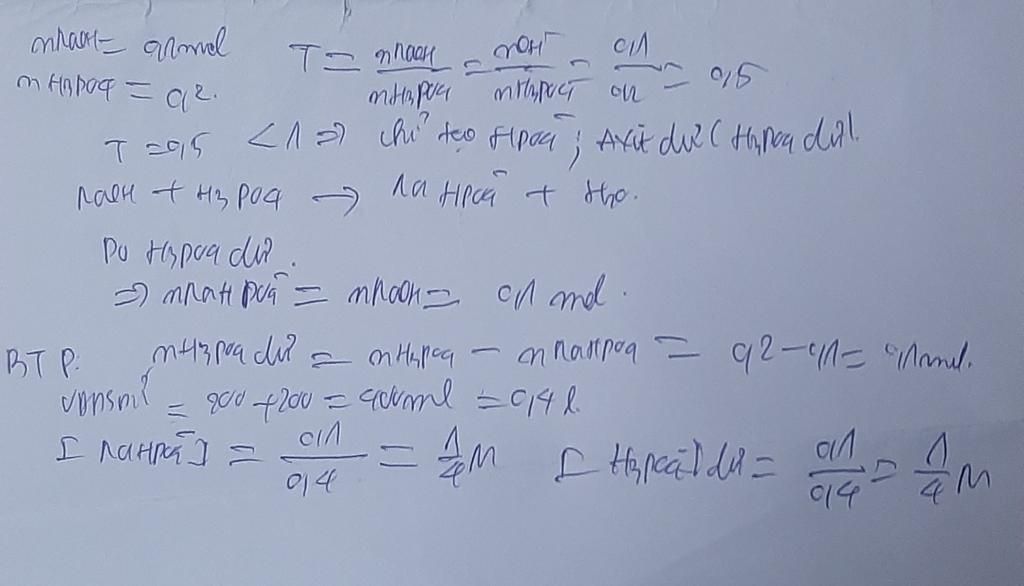 nNaOH = 0,1 mol T = nNaOH/nH3PO4 = nOH⁻/nH3PO4 = 0,1/0,2 = 0,5
nH3PO4 = 0,2.
T = 0,5 < 1 => chỉ tạo HPO4⁻ ; Axit dư ( H3PO4 dư).
NaOH + H3PO4 → NaHPO4⁻ + H2O.
Do H3PO4 dư.
=> nNaHPO4⁻ = nNaOH = 0,1 mol.
BT P: nH3PO4 dư = nH3PO4 - nNaHPO4 = 0,2 - 0,1 = 0,1 mol.
= 200 + 200 = 400ml = 0,4 l.
[NaHPO4⁻] = 0,1/0,4 = 1/4 M [H3PO4⁻] dư = 0,1/0,4 = 1/4 M